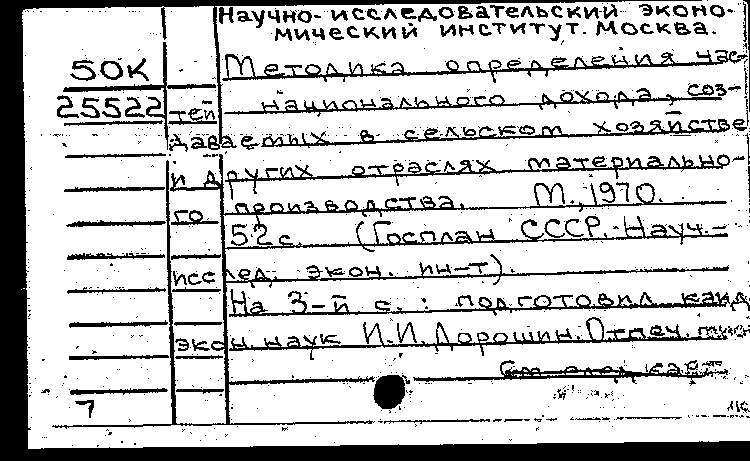 Научно-исследовательский эконо-
мический институт. Москва.
50К
Методика определения час-
25522
тей национального дохода, соз-
даваемых в сельском хозяйстве
и других отраслях материально-
го производства. М., 1970.
52 с. (Госплан СССР. Науч.-
исслед. экон. ин-т).
На 3-й с.: подготовил канд.
экон. наук И.И. Дорошин. Отпеч.
См. след. карт.
7